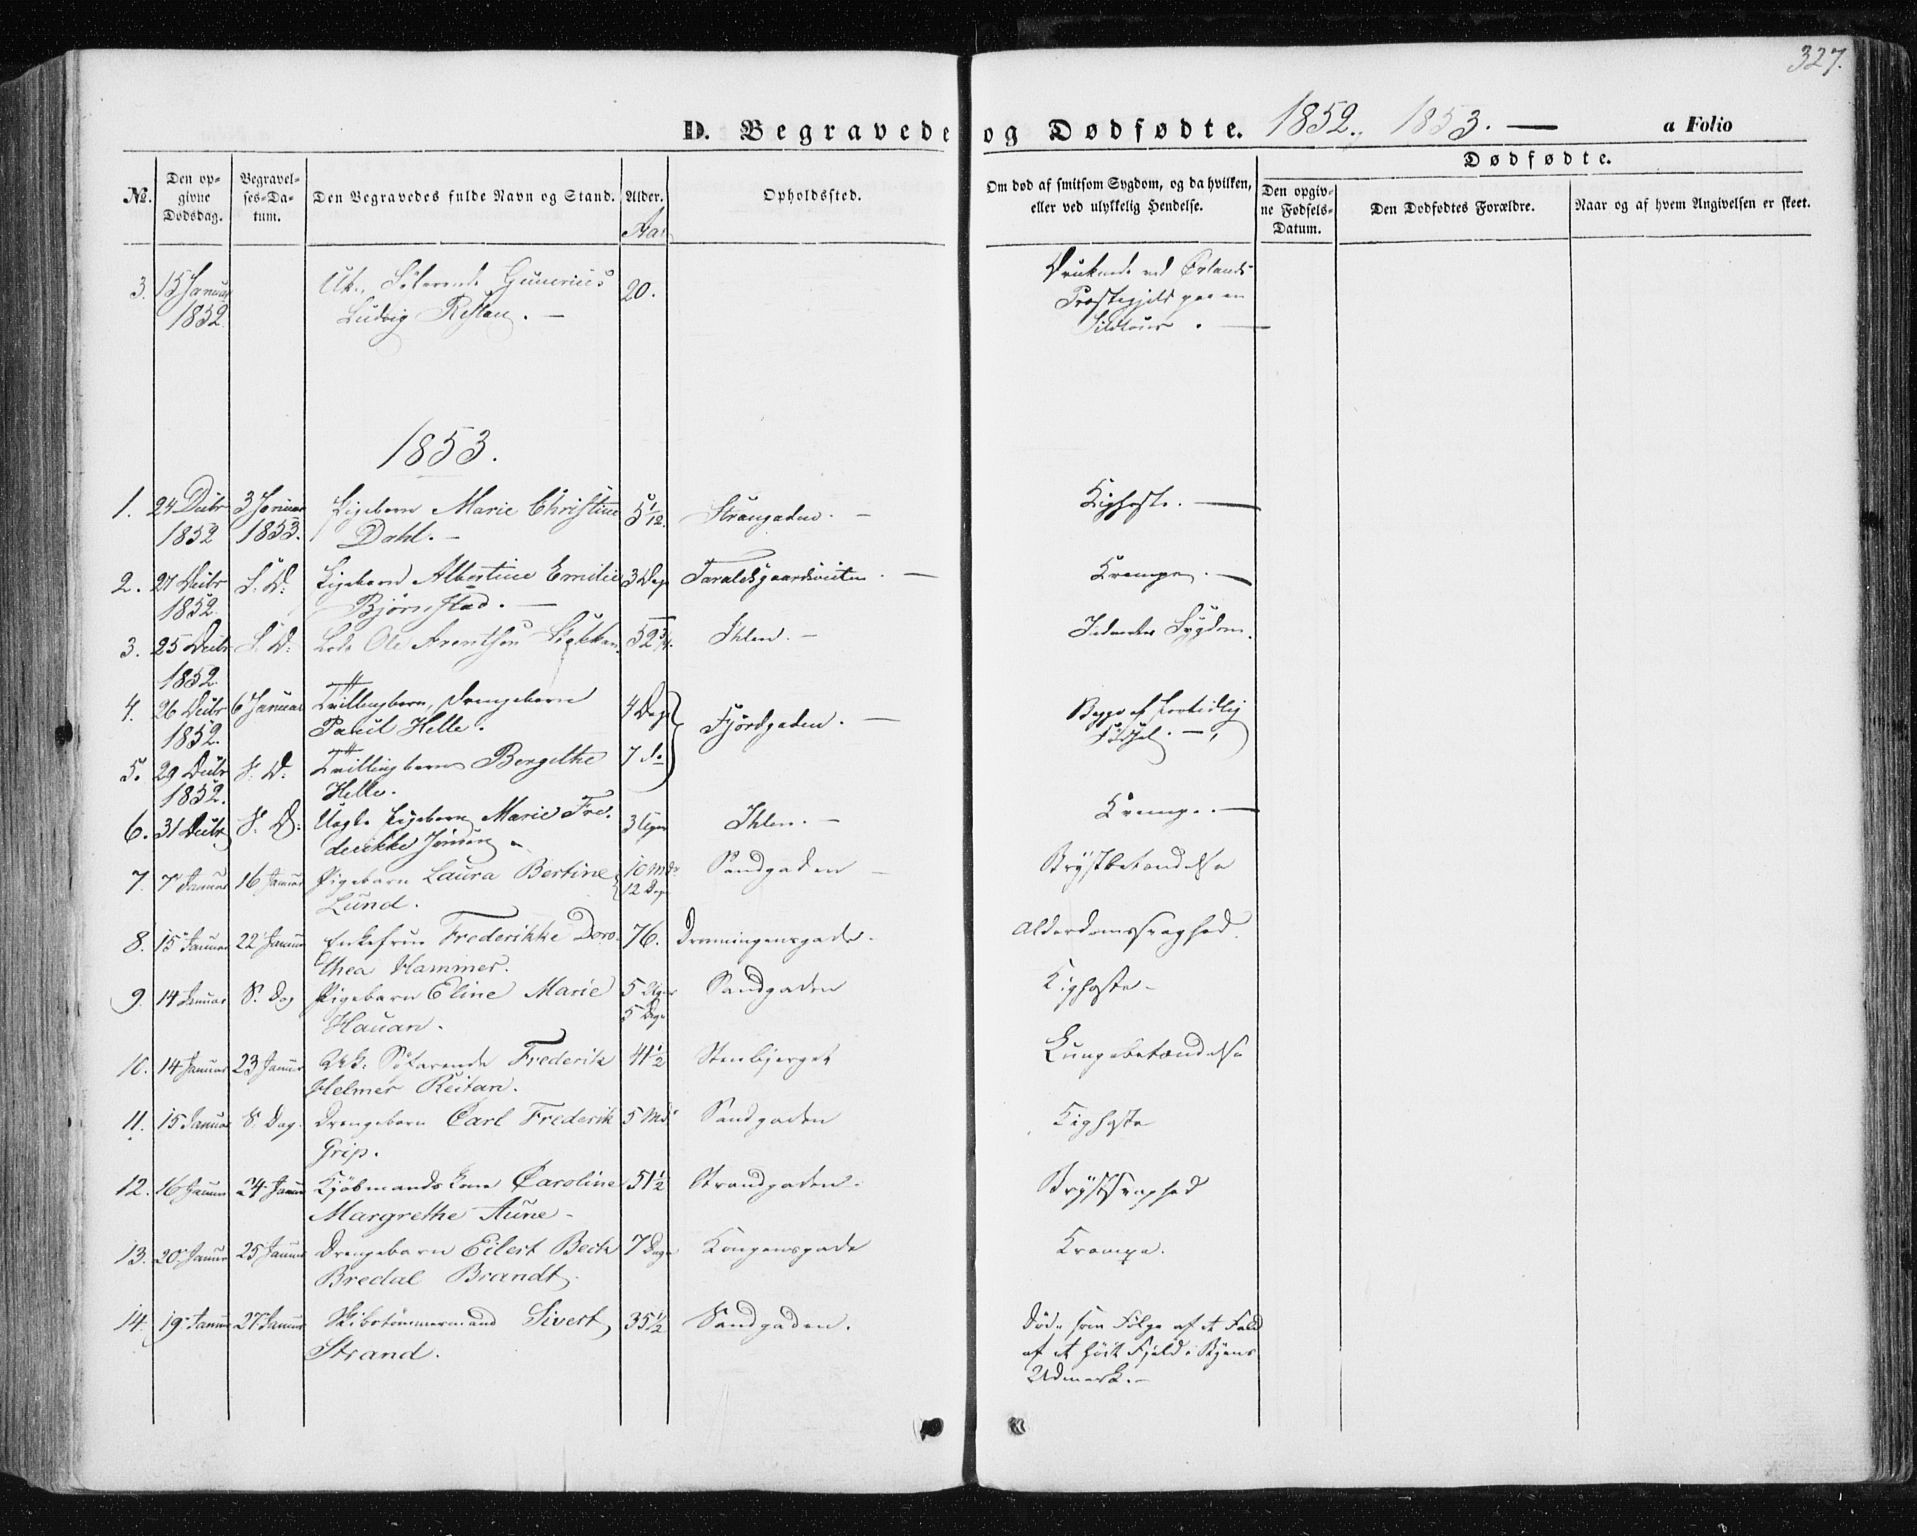 327.
D. Begravede og Dødfødte. 1852. 1853. — a Folio
No.
Den opgivne Dødsdag.
Begravelses-Datum.
Den Begravedes fulde Navn og Stand.
Alder.
Opholdssted.
Om død af smitsom Sygdom, og da hvilken, eller ved ulykkelig Hendelse.
Dødfødte.
Den opgivne Fødsels-Datum.
Den Dødfødtes Forældre.
Naar og af hvem Angivelsen er skeet.
3. 15 Januar Søfarende 20. ved Ørlands
1852 Ludvig Præstegjeld paa en
1853.
1. 24 Decbr 3 Januar Pigebarn Marie Christine 5 1/12. Kighoste. —
1852 1853. Dahl. —
2. 27 Decbr S. D. Pigebarn Albertine Emilie 3 Dage Krampe. —
1852. Bjørnstad. —
3. 25 Decbr S. D. Lods Ole Arentsen 52 3/4. Ihlen. — Sygdom.
1852.
4. 26 Decbr 6 Januar Tvillingbarn, Drengebarn 4 Dage Fjordgaden. — Begge af fortidlig
1852. Paul Helle. Fødsel. —
5. 29 Decbr S. D. Tvillingbarn Bergithe 7 do
1852. Helle.
6. 31 Decbr S. D. Uægte Pigebarn Marie Fre- 3 Uger Ihlen. — Krampe. —
derikke Jonsen
7. 7 Januar 16 Januar Pigebarn Laura Bertine 10 Mdr 12 Dage Sandgaden — Brystbetændelse
Lund.
8. 15 Januar 22 Januar Enkefrue Frederikke Doro- 76. Dronningensgade. Alderdomssvaghed.
thea Hammer.
9. 14 Januar S. Dag Pigebarn Eline Marie 5 Uger 5 Dage Sandgaden Kighoste
Hauan.
10. 14 Januar 23 Januar Søfarende Frederik 41 1/2 Stenbjerget Lungebetændelse
Helmer Reitan.
11. 15 Januar S. Dag. Drengebarn Carl Frederik 5 Mdr Sandgaden Kighoste
Grip.
12. 16 Januar 24 Januar Kjøbmands Kone Caroline 51 1/2 Strandgaden. Brystsvaghed
Margrethe Aune
13. 20 Januar 25 Januar Drengebarn Eilert Beck 7 Dage Kongensgade Krampe.
Bredal Brandt.
14. 19 Januar 27 Januar Skibstømmermand Sivert 35 1/2 Sandgaden. Døde som Følge af et Fald
Strand. af et høit Fjeld i Byens
Udmark. —